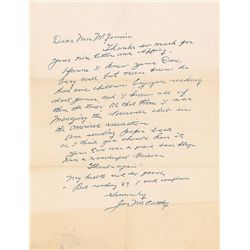 Dear Mrs McGinnis
Thanks so much for
your nice letter and clipping.
I knew your Dad
very well but never knew he
had one children. Enjoyed reading
and I knew all of
the all their At that time I was
Managing the Louisville club in
the American association
Am sending paper back
as I think you should have it.
Your Dad was a great ball player
and a wonderful person
Thanks again
My health not so good,
But reading 89, I cant complain
Sincerely
Joe McCarthy